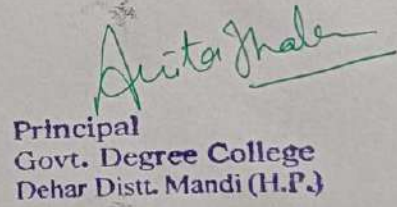 Principal
Govt. Degree College
Dehar Distt. Mandi (H.P.)